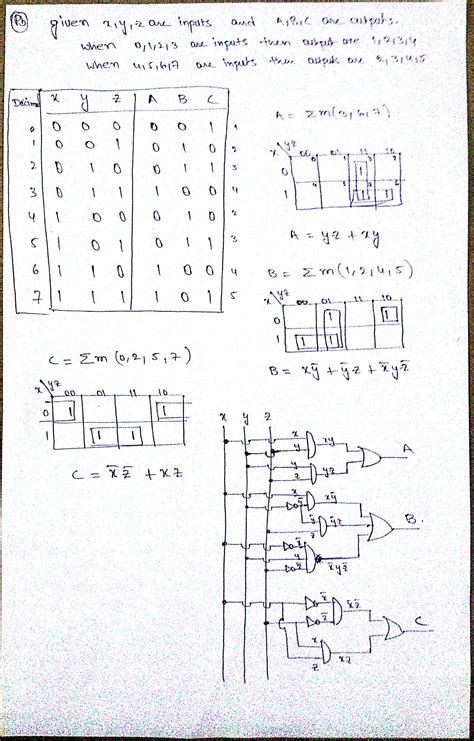 given x, y, z are inputs and A, B, C are outputs.
when 0, 1, 2, 3 are inputs then output are 1, 2, 3, 4
when 4, 5, 6, 7 are inputs then outputs are 2, 3, 4, 5
Decimal x y z A B C
0 0 0 0 0 0 1 1
1 0 0 1 0 1 0 2
2 0 1 0 0 1 1 3
3 0 1 1 1 0 0 4
4 1 0 0 0 1 0 2
5 1 0 1 0 1 1 3
6 1 1 0 1 0 0 4
7 1 1 1 1 0 1 5
A = Σm(3, 6, 7)
x yz 00 01 11 10
0 1
1 1 1
A = yz + xy
B = Σm(1, 2, 4, 5)
x yz 00 01 11 10
0 1 1
1 1 1
B = xȳ + ȳz + x̄yz̄
C = Σm(0, 2, 5, 7)
x yz 00 01 11 10
0 1 1
1 1 1
C = x̄z̄ + xz
x y z
x
y
xy
A
y
z
yz
x
ȳ
xȳ
ȳ
z
ȳz
B.
x̄
y
z̄
x̄yz̄
x̄
z̄
x̄z̄
C
x
z
xz